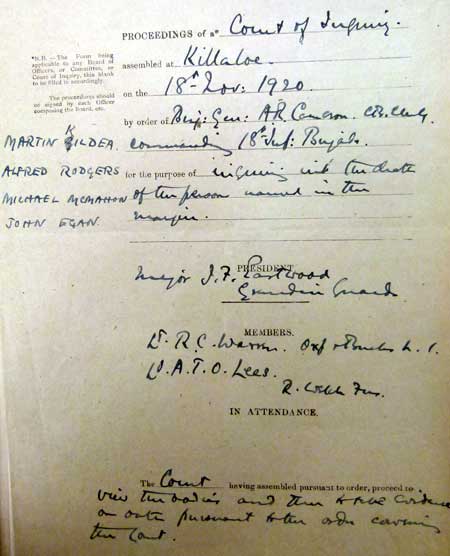 PROCEEDINGS OF a* Court of Inquiry.
*N.B.—The Form being
applicable to any Board of
Officers, or Committee, or
Court of Inquiry, this blank
to be filled in accordingly.
The proceedings should
be signed by each Officer
composing the Board, etc.
assembled at Killaloe.
on the 18th Nov: 1920.
by order of Brig: Gen: A R Cameron
commanding 18th Inf: Brigade.
for the purpose of inquiring into the death
of the person named in the
margin.
MARTIN KILDEA
ALFRED RODGERS
MICHAEL MCMAHON
JOHN EGAN.
PRESIDENT.
Major J. F. Eastwood
Grenadier Guards
MEMBERS.
Lt. R. C. Warren. Oxf & Bucks L. I.
Lt. A. T. O. Lees.
R. Welch Fus.
IN ATTENDANCE.
The Court having assembled pursuant to order, proceed to
view the bodies and then to take evidence
on oath pursuant to the order convening
the Court.